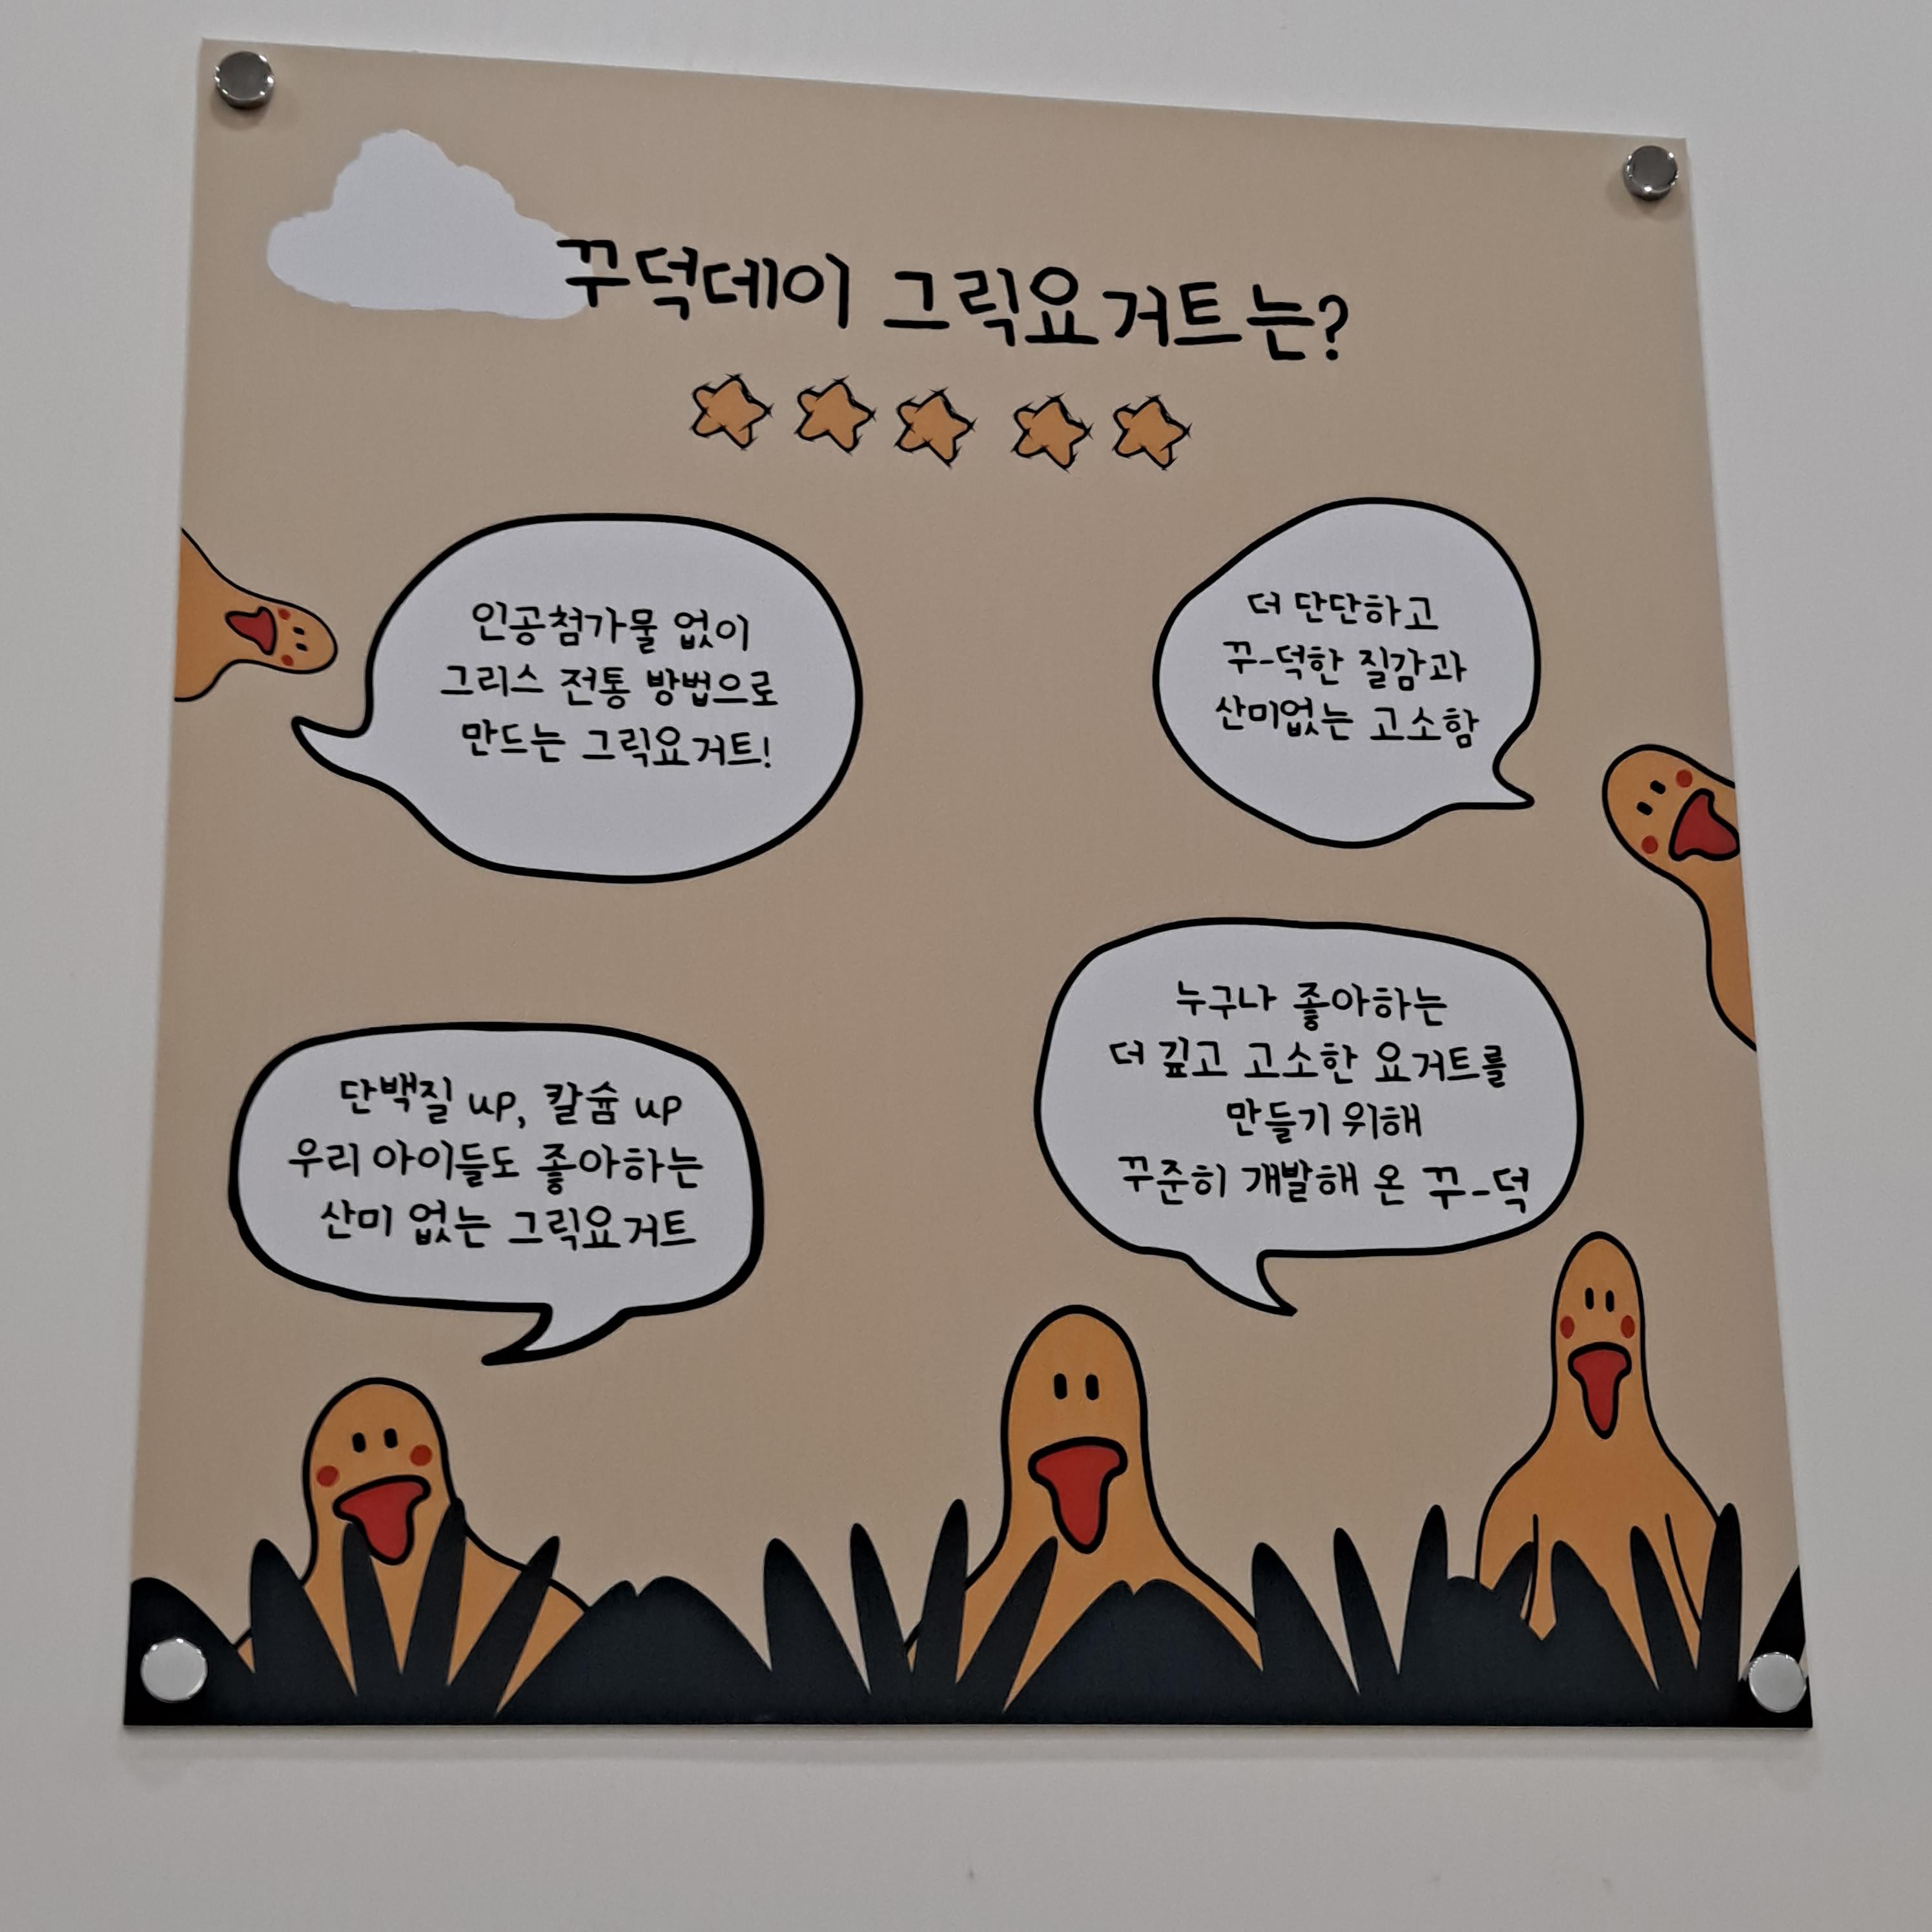 꾸덕데이 그릭요거트는?
인공첨가물 없이
그리스 전통 방법으로
만드는 그릭요거트!
더 단단하고
꾸-덕한 질감과
산미없는 고소함
단백질 up, 칼슘 up
우리 아이들도 좋아하는
산미 없는 그릭요거트
누구나 좋아하는
더 깊고 고소한 요거트를
만들기 위해
꾸준히 개발해 온 꾸-덕